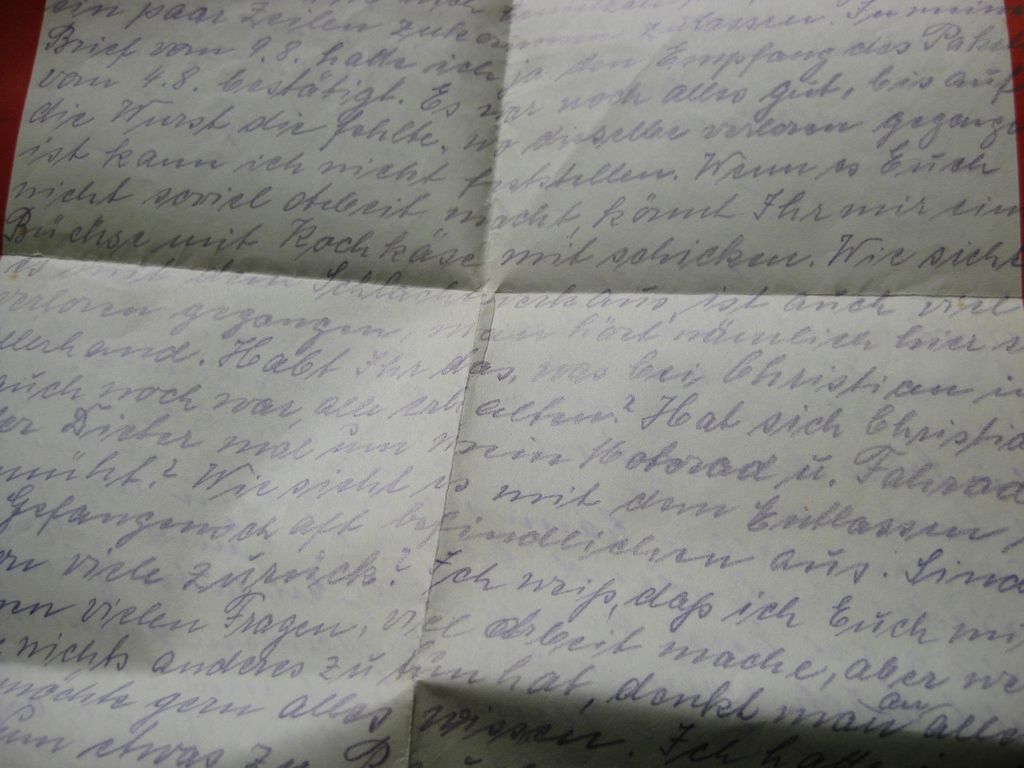 ein paar Zeilen zukommen zu lassen. In meine
Brief vom 9.8. hatte ich ja den Empfang des Paket
vom 4.8. bestätigt. Es war noch alles gut, bis auf
die Wurst die fehlte, wo dieselbe verloren gegange
ist kann ich nicht feststellen. Wenn es Euch
nicht soviel Arbeit macht, könnt Ihr mir ein
Büchse mit Kochkäse mit schicken. Wie sieht
es mit dem Schlachtwerk aus, ist auch viel
verloren gegangen, man hört nämlich hier s
llerhand. Habt Ihr das, was bei Christian in
auch noch war, alle erhalten? Hat sich Christia
er Dieter mal um mein Motorrad u. Fahrrad
müht? Wie sieht es mit dem Entlassen
Gefangenschaft befindlichen aus. Sind
on viele zurück? Ich weiß, daß ich Euch mi
en vielen Fragen, viel Arbeit mache, aber we
nichts anderes zu tun hat, denkt man an alles
möchte gern alles wissen. Ich hatte
um etwas zu